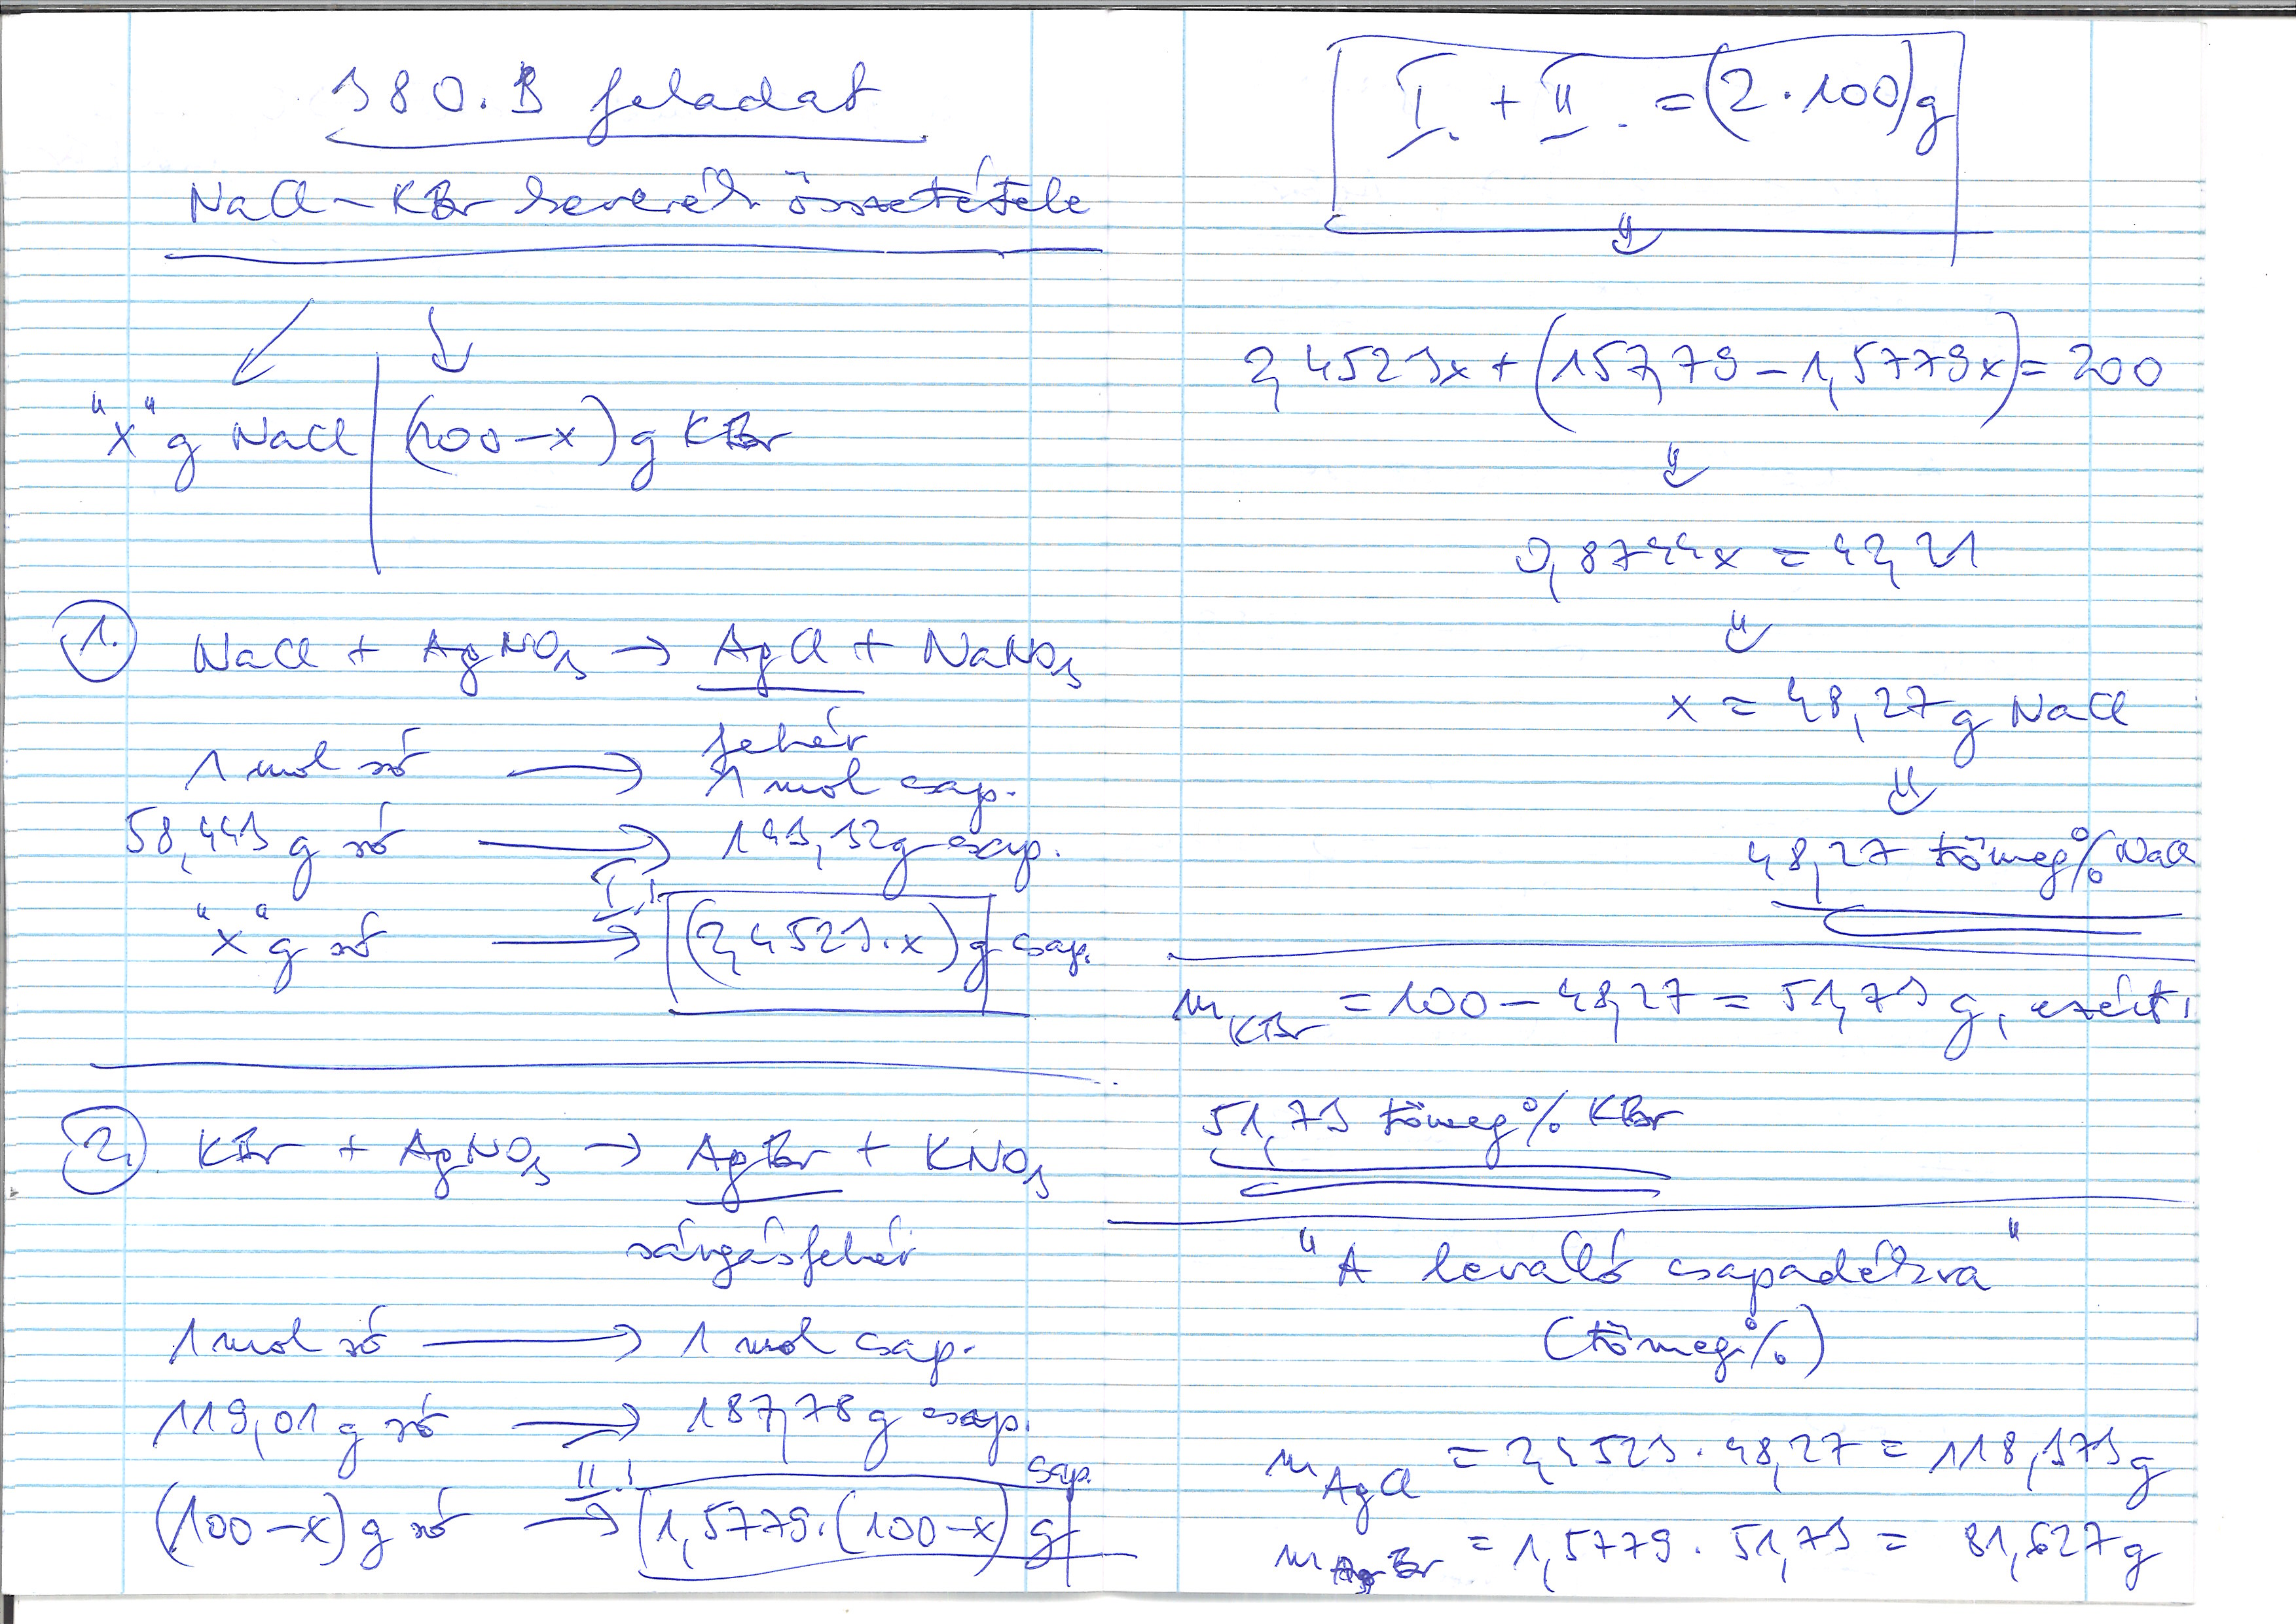 380. B feladat
NaCl – KBr keverék összetétele
"x" g NaCl | (100 – x) g KBr
1. NaCl + AgNO3 → AgCl + NaNO3
fehér
1 mol só → 1 mol csap.
58,443 g só → 143,32 g csap.
"x" g só I.! → (2,4523·x) g csap.
2. KBr + AgNO3 → AgBr + KNO3
sárgásfehér
1 mol só → 1 mol csap.
119,01 g só → 187,78 g csap.
(100 – x) g só II.! → 1,5779·(100 – x) g csap.
I. + II. = (2·100) g
⇓
2,4523x + (157,79 – 1,5779x) = 200
⇓
0,8744x = 42,21
⇓
x = 48,27 g NaCl
⇓
48,27 tömeg% NaCl
mKBr = 100 – 48,27 = 51,73 g, ezért:
51,73 tömeg% KBr
"A leváló csapadékra"
(tömeg%)
mAgCl = 2,4523·48,27 = 118,373 g
mAgBr = 1,5779·51,73 = 81,627 g